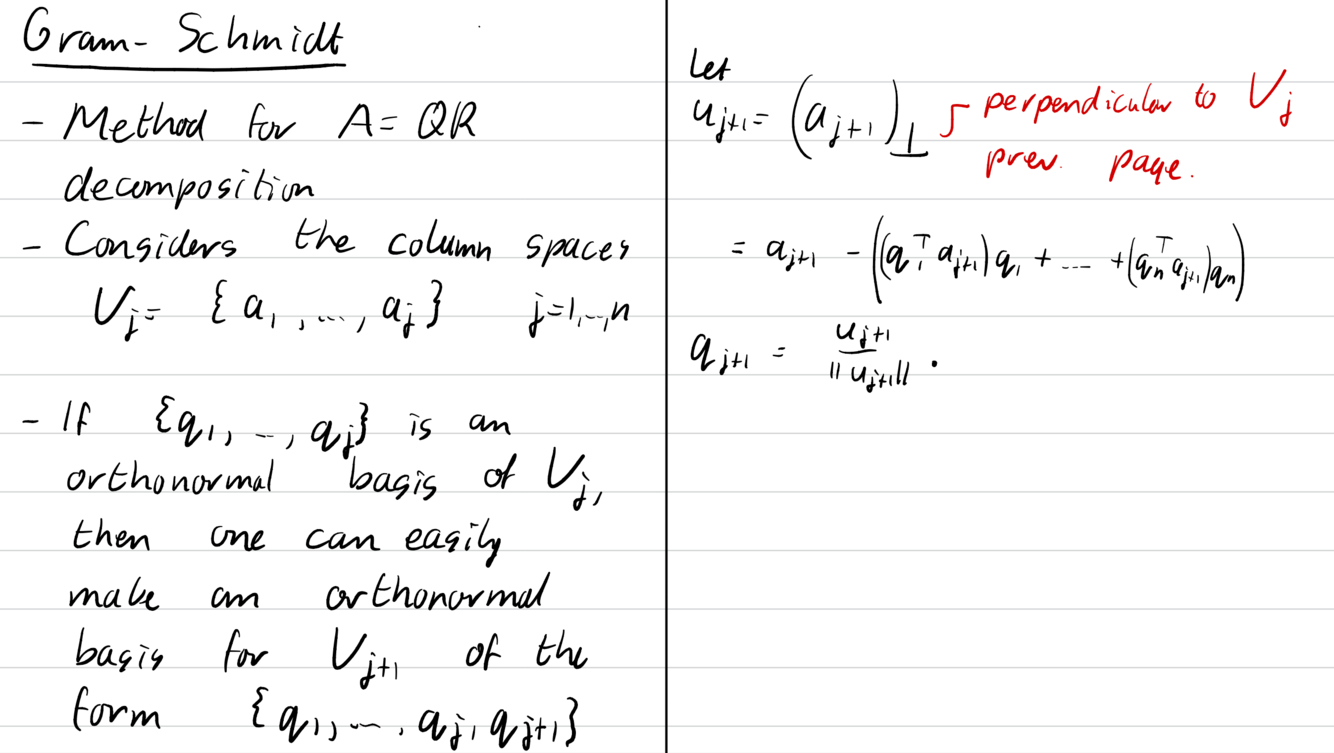 Gram-Schmidt
- Method for A = QR
decomposition
- Considers the column spaces
V_j = {a_1, ..., a_j} j=1,..,n
- If {q_1, .., q_j} is an
orthonormal basis of V_j,
then one can easily
make an orthonormal
basis for V_{j+1} of the
form {q_1, ..., q_j, q_{j+1}}
Let
u_{j+1} = (a_{j+1})_⊥ perpendicular to V_j
prev. page.
= a_{j+1} - ((q_1^T a_{j+1}) q_1 + .... + (q_n^T a_{j+1}) q_n)
q_{j+1} = u_{j+1} / ||u_{j+1}|| .